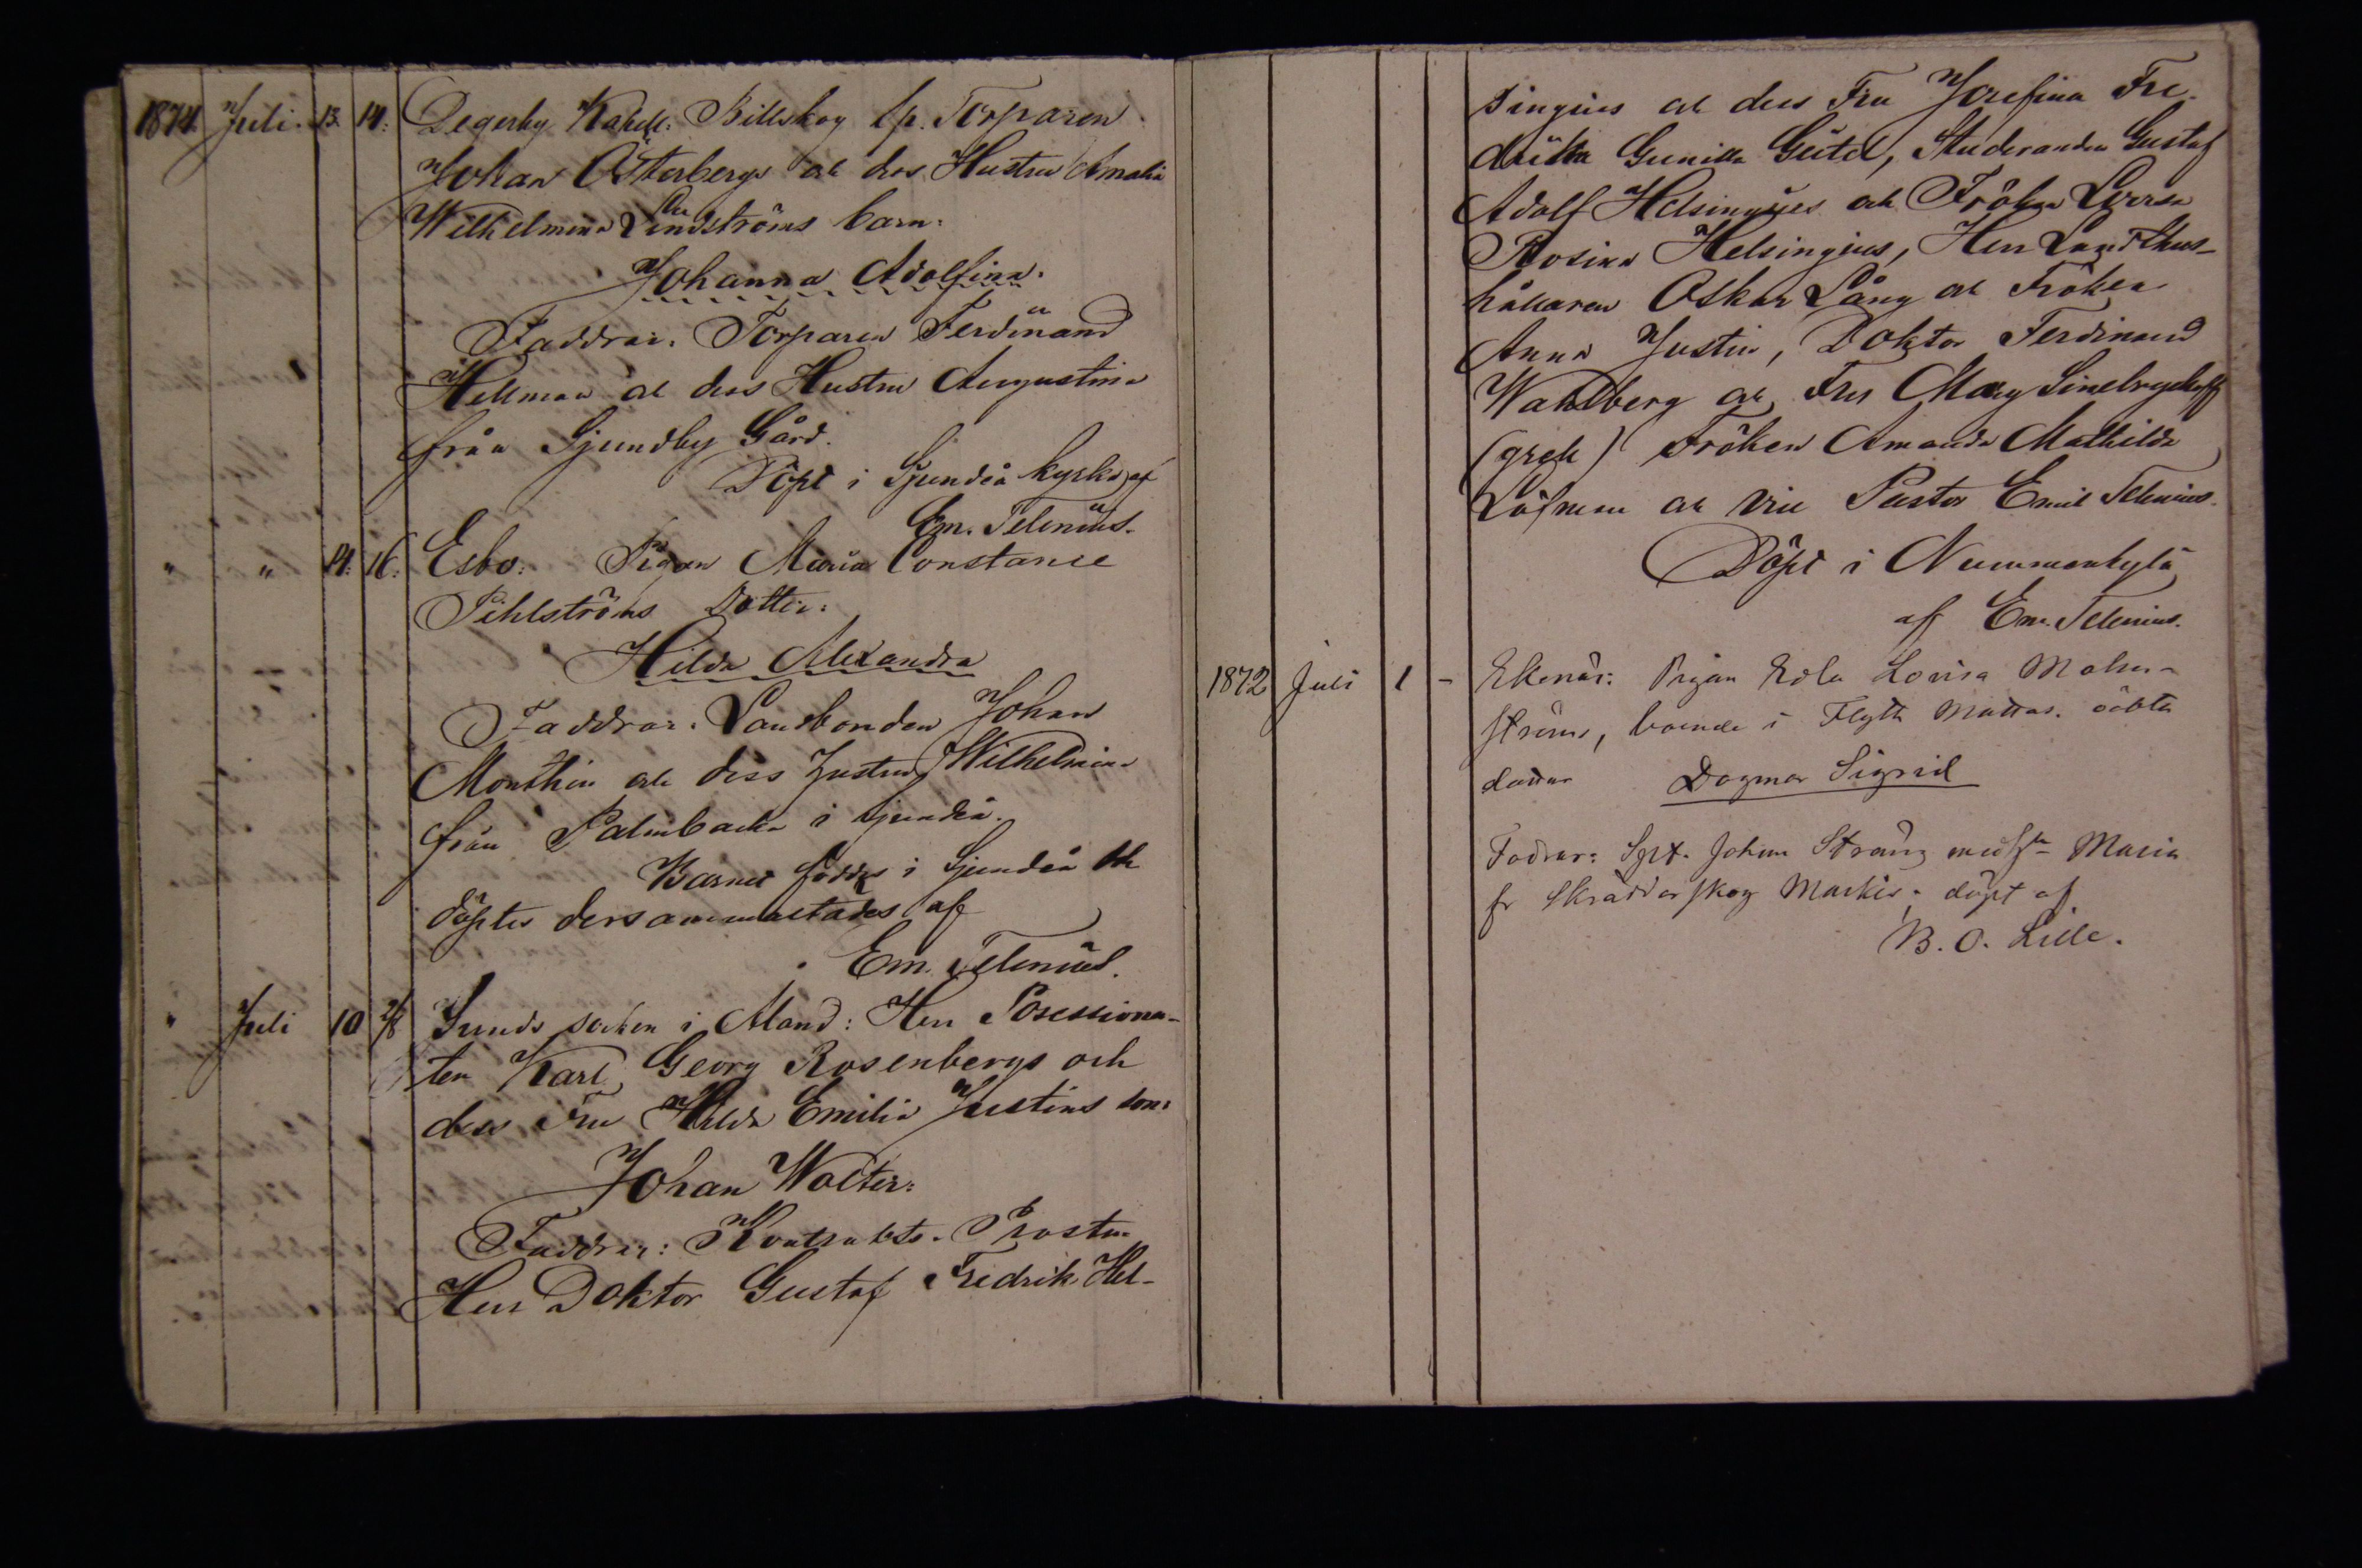 1871. Juli. 13. 14. Degerby Kapell: Billskog lp. Torparen
Johan Österbergs och dess Hustru Amalia
Wilhelmina Lindströms barn:
Johanna Adolfina.
Faddrar: Torparen Ferdinand
Hellman och dess Hustru Augustina
från Sjundby Gård.
Döpt i Sjundeå kyrka af
Em. Telenius.
" " 14. 16. Esbo: Pigan Maria Constance
Pihlströms Dotter:
Hilda Alexandra
Faddrar: Landbonden Johan
Monthin och dess hustru Wilhelmina
från Palmbacka i Sjundeå.
Barnet föddes i Sjundeå och
döptes dersammastädes af
Em. Telenius.
" Juli 10 2/8 Sunds socken i Åland: Herr Posessiona-
ten Karl Georg Rosenbergs och
dess Fru Hilda Emilia Justins son:
Johan Walter:
Faddrar: Kontrakts-Prosten
Herr Doktor Gustaf Fredrik Hel-
singius och dess Fru Josefina Fre-
drika Gunilla Gütel, Studeranden Gustaf
Adolf Helsingius och Fröken Lovisa
Rosina Helsingius, Herr Landthus-
hållaren Oskar Lång och Fröken
Anna Justin, Doktor Ferdinand
Wahlberg och Fru Mary Sinebrychoff
(grek) Fröken Amanda Mathilda
Löfman och Vice Pastor Emil Telenius.
Döpt i Nummenkylä
af Em. Telenius.
1872 Juli 1 - Ekenäs: Pigan Edla Lovisa Malm-
ströms, boende i Flyth Mattas. oäkta
dotter Dagmar Sigrid
Fadrar: Johan Strång med Maria
fr Skräddarskog Markis; döpt af
B. O. Lille.